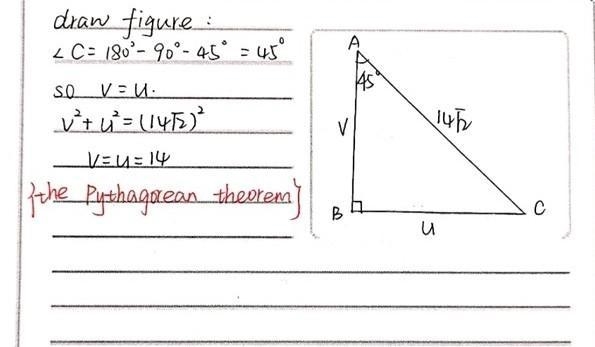 draw figure :
∠C = 180° - 90° - 45° = 45°
so v = u.
v² + u² = (14√2)²
v = u = 14
{the Pythagorean theorem}
A
45°
14√2
V
B
C
u